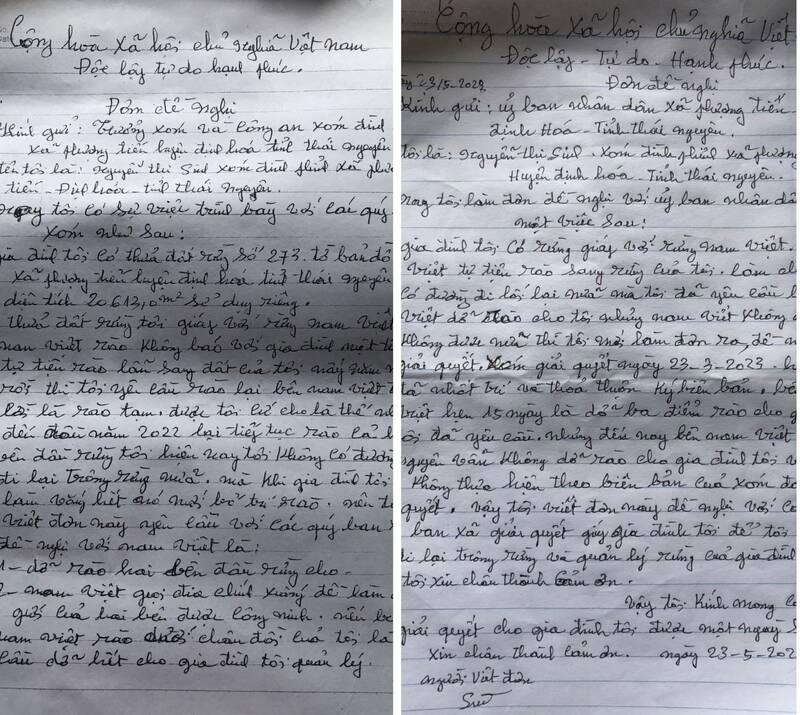 Cộng hòa xã hội chủ nghĩa Việt nam
Độc lập tự do hanh phúc.
Đơn đề nghi
Kính gửi: Trưởng xóm và Công an xóm đình
xã phương tiến huyện định hoá tỉnh thái nguyên
tên tôi là: nguyễn thi Sinh xóm đình phỉnh xã phư
tiến - Định hoá - tỉnh thái nguyên.
nay tôi có sự việc trình bày với các quý
xóm như sau:
gia đình tôi có thửa đất rừng số 273. tờ bản đồ
xã phương tiến huyện định hoá tỉnh thái nguyên
diện tích 20613,0m² sử dụng riêng.
thửa đất rừng tôi giáp với rừng nam việt
nam việt rào không báo với gia đình một
tự tiện rào lấn sang đất của tôi mấy năm
rồi thì tôi yêu cầu rào lại bên nam việt
lại là rào tạm. được tôi cứ cho là thế
đến đầu năm 2022 lại tiếp tục rào cả
bên đầu rừng tôi hiện nay tôi không có đường
đi lại trong rừng nữa. mà khi gia đình tôi
làm vắng hết nó mới rào. nên
viết đơn này yêu cầu với các quý ban
đề nghi với nam việt là:
1 - dỡ rào hai bên đầu rừng cho
2 - nam việt gọi địa chính xuống để làm
giới của hai bên được công minh. nếu
nam việt rào dưới chân đồi của tôi là
cầu dỡ hết cho gia đình tôi quản lý.
Cộng hòa xã hội chủ nghĩa Việt
Độc lập - Tự do - Hạnh phúc.
23/5-2023 Đơn đề nghi
Kính gửi: uỷ ban nhân dân xã phương tiến
định Hoá - Tỉnh thái nguyên.
tôi là: nguyễn thi Sinh. xóm đình phỉnh xã phương
Huyện định hoá - Tỉnh thái nguyên.
nay tôi làm đơn đề nghi với uỷ ban nhân dân
một việc sau:
gia đình tôi có rừng giáp với rừng nam việt.
việt tự tiện rào sang rừng của tôi. làm
có đường đi lối lại nữa mà tôi đã yêu cầu
việt dỡ rào cho tôi nhưng nam việt không
không được nữa thì tôi mới làm đơn ra. đề
giải quyết. xóm giải quyết ngày 23-3-2023.
đã nhất trí và thoả thuận ký biên bản. bên
việt hẹn 15 ngày là dỡ ba điểm rào cho
tôi đã yêu cầu. nhưng đến nay bên nam việt
nguyên vẫn không dỡ rào cho gia đình tôi
không thực hiện theo biên bản của xóm
quyết. vậy tôi viết đơn này đề nghi với
ban xã giải quyết giúp gia đình tôi để tôi
đi lại trong rừng và quản lý rừng của gia đình
tôi xin chân thành cảm ơn.
vậy tôi kính mong
giải quyết cho gia đình tôi được một ngày
xin chân thành cảm ơn. ngày 23-5-202
người viết đơn